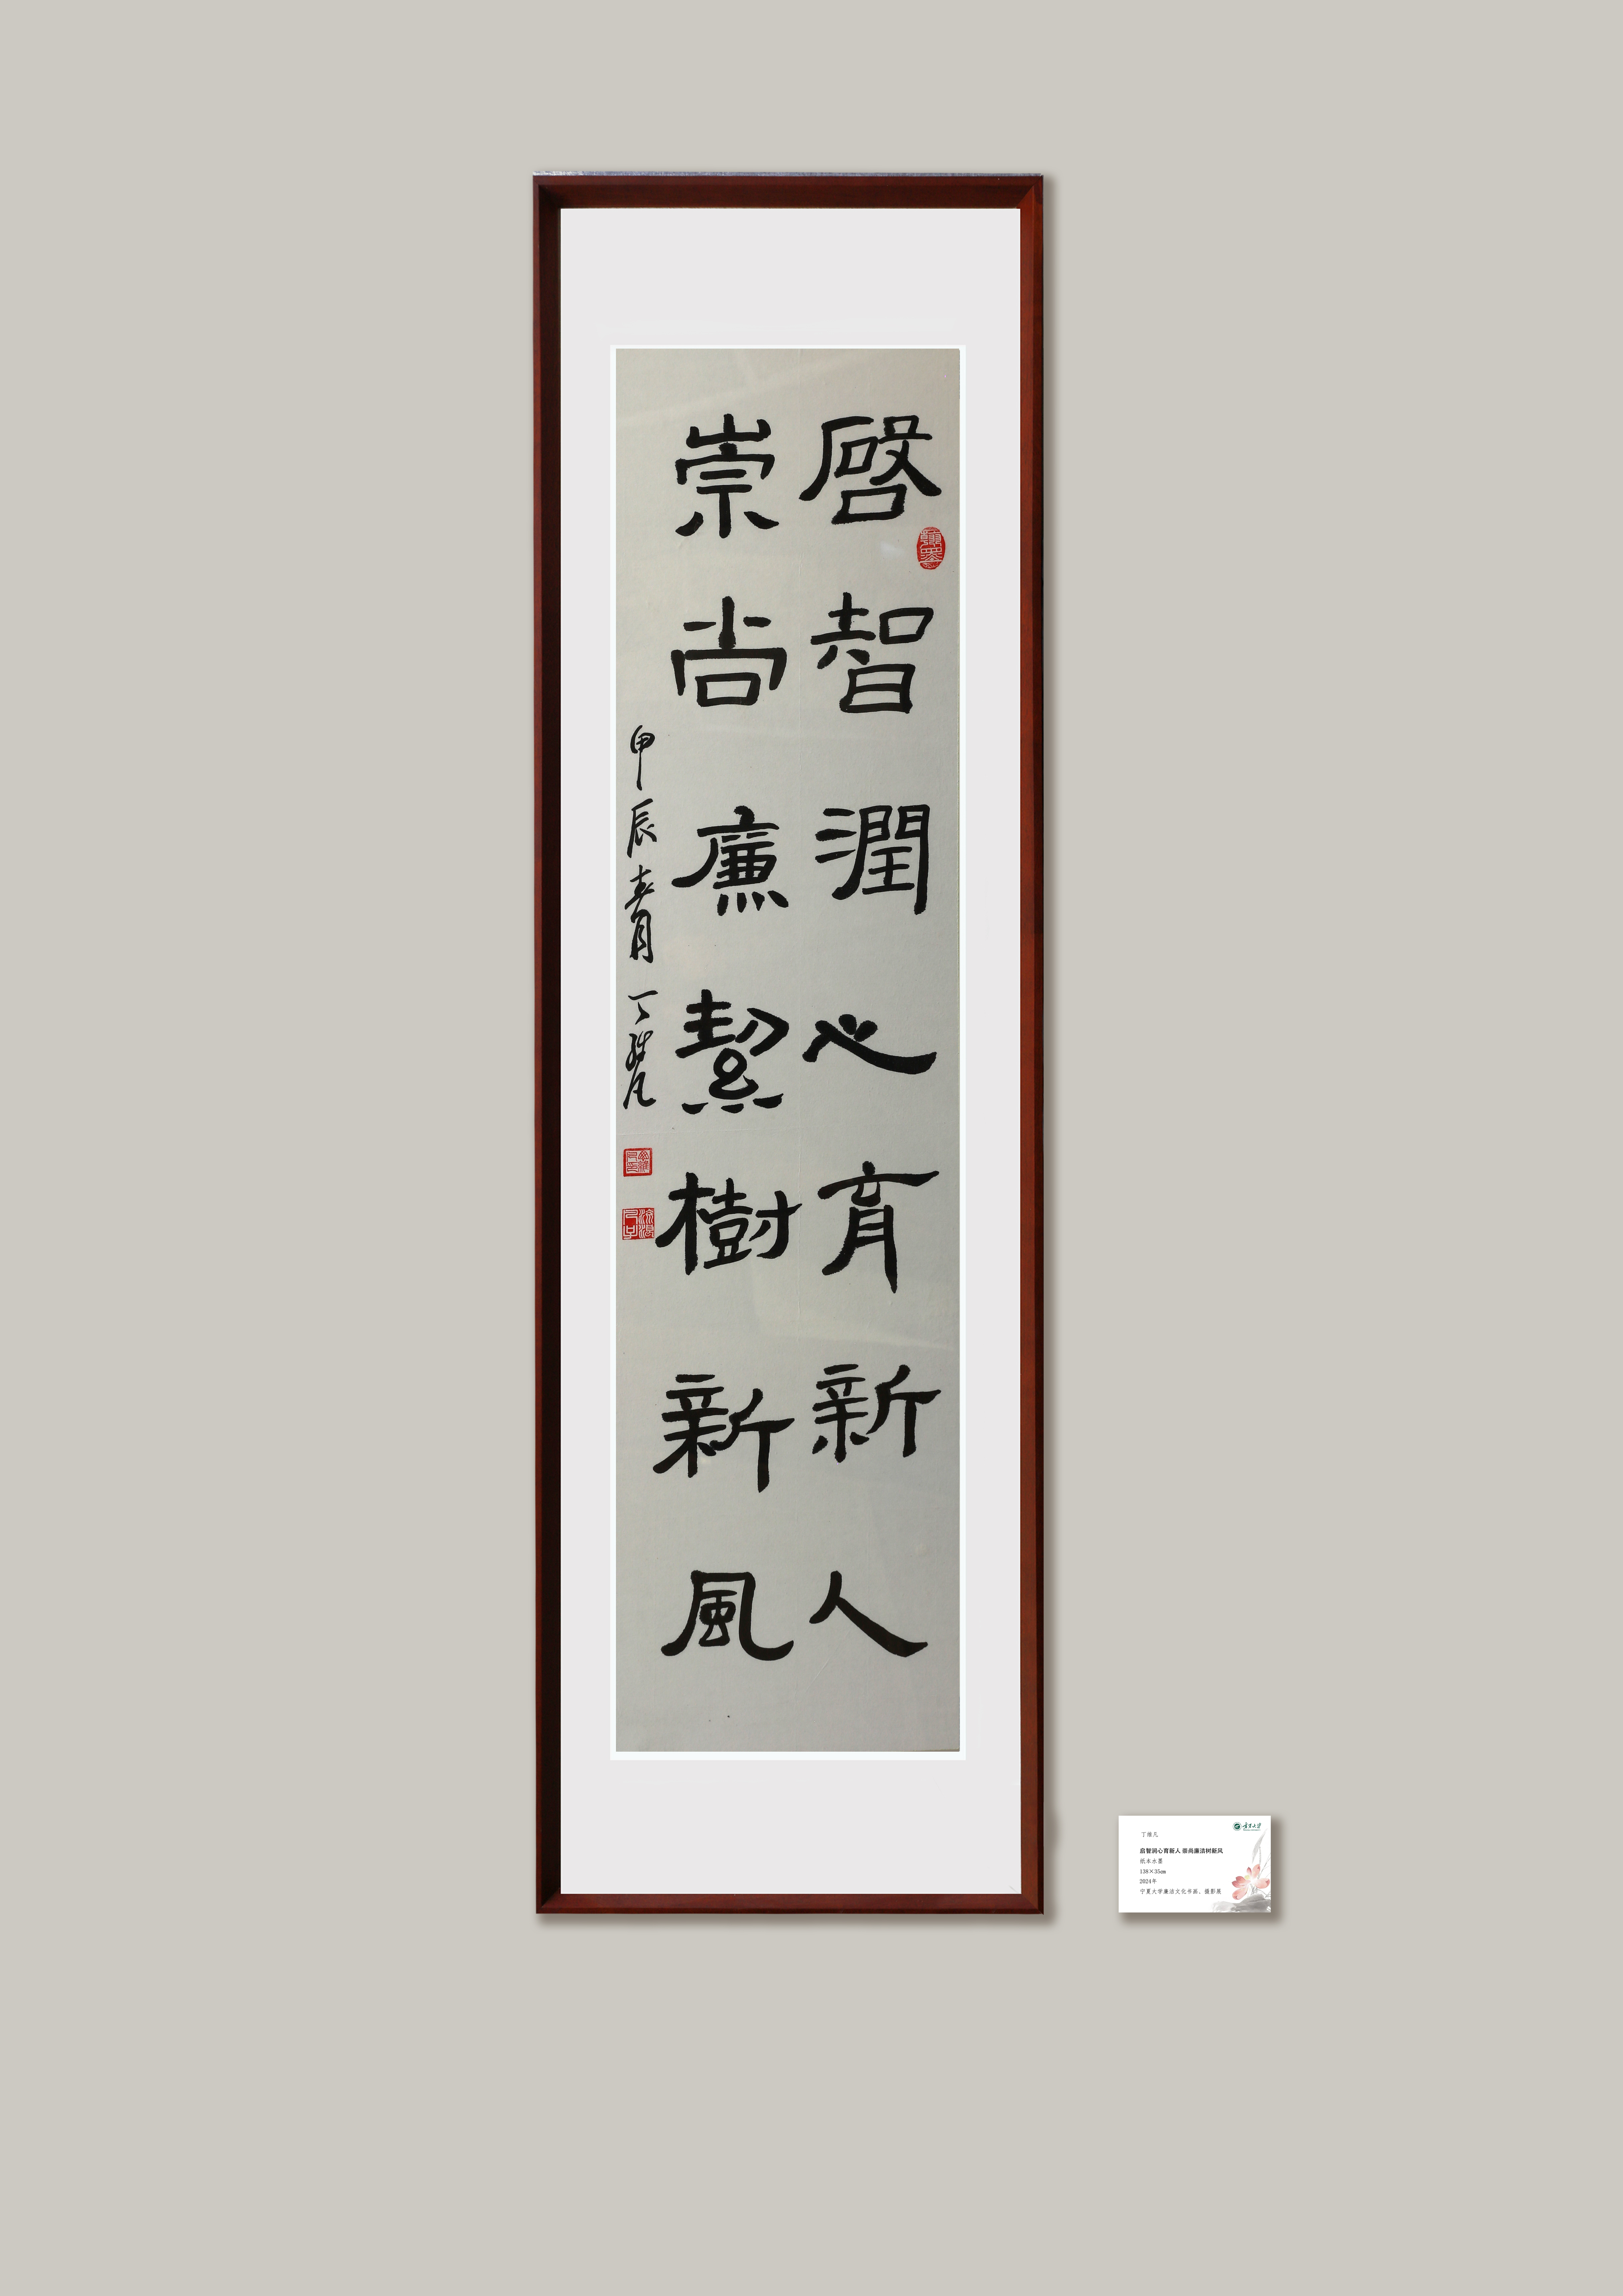 啓智潤心育新人
崇尚廉絜樹新風
甲辰春月 丁继凡
翰墨
宁夏大学
丁继凡
启智润心育新人 崇尚廉洁树新风
纸本水墨
138×35㎝
2024年
宁夏大学廉洁文化书画、摄影展